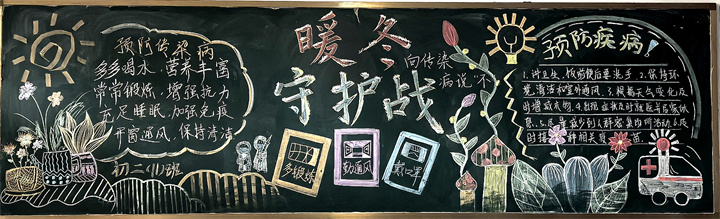 预防传染病
多多喝水,营养丰富
常常锻炼,增强抗力
充足睡眠,加强免疫
开窗通风,保持清洁
初二(1)班
暖冬
守护战
向传染
病说"不"
多锻炼
勤通风
戴口罩
预防疾病!
1.讲卫生,饭前便后要洗手 2.保持环
境清洁和室内通风,3.根据天气变化及
时增减衣物,4.出现症状及时就医并居家休
息.5.尽量少到人群密集场所活动 6.及
时接种相关疫苗